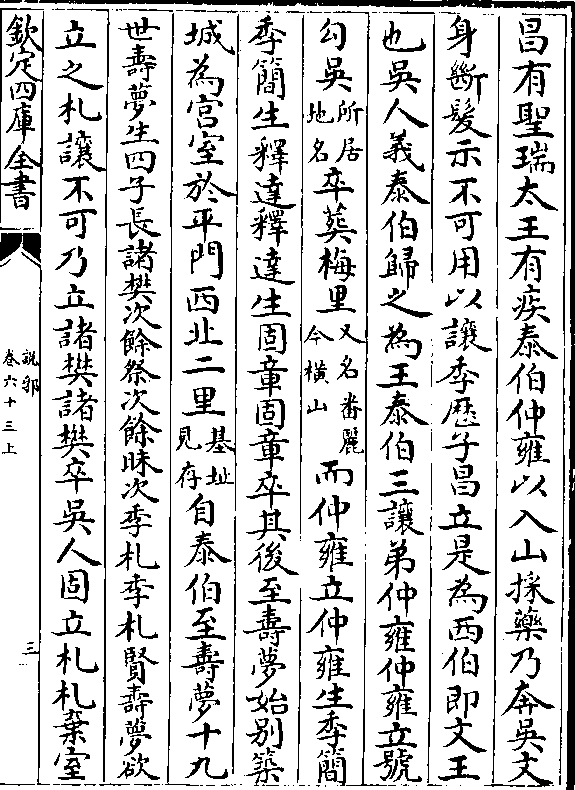 昌有聖瑞太王有疾泰伯仲雍以入山採藥乃奔吳文
身斷髮示不可用以讓季歷子昌立是為西伯即文王
也吳人義泰伯歸之為王泰伯三讓弟仲雍仲雍立號
勾吳所居地名卒葬梅里又名番麗今橫山而仲雍立仲雍生季簡
季簡生釋達釋達生固章固章卒其後至壽夢始别築
城為宮室於平門西北二里基址見存自泰伯至壽夢十九
世壽夢生四子長諸樊次餘祭次餘昧次季札季札賢壽夢欲
立之札讓不可乃立諸樊諸樊卒吳人固立札札棄室
欽定四庫全書
說郛
卷六十三上
三